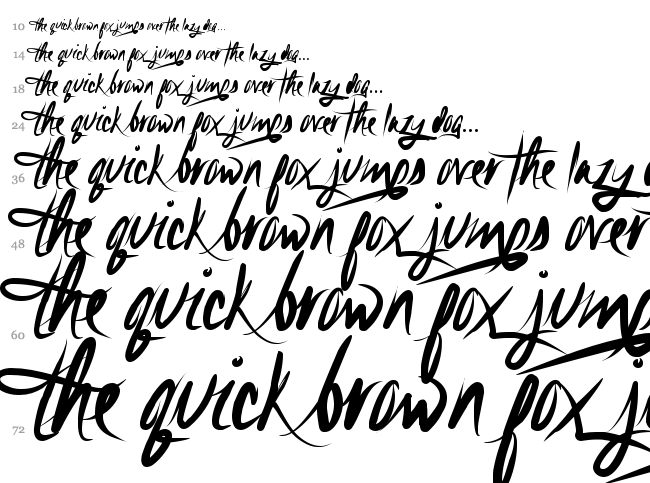 10 the quick brown fox jumps over the lazy dog...
14 the quick brown fox jumps over the lazy dog...
18 the quick brown fox jumps over the lazy dog...
24 the quick brown fox jumps over the lazy dog...
36 the quick brown fox jumps over the lazy
48 the quick brown fox jumps over
60 the quick brown fox jump
72 the quick brown fox j